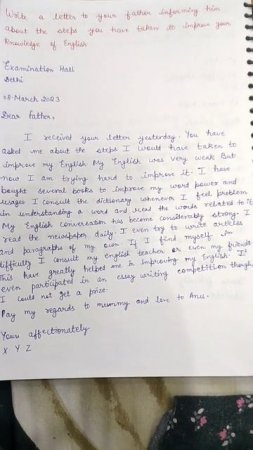 Write a letter to your father informing him
about the steps you have taken to improve your
knowledge of English
Examination Hall
Delhi
28 March 2023
Dear Father,
I received your letter yesterday. You have
asked me about the steps I would have taken to
improve my English My English was very weak But
now I am trying hard to improve it. I have
bought several books to improve my word power and
usages I consult the dictionary whenever I feel problem
in understanding a word and read the words related to it
My English conversation has become considerably strong. I
read the newspaper daily. I even try to write articles
and paragraphs of my own. If I find myself in
difficulty I consult my English teacher or even my friends
This have greatly helped me in improving my English. I
even participated in an essay writing competition though
I could not get a prize.
Pay my regards to mummy and love to Anu-
Your affectionately
X Y Z